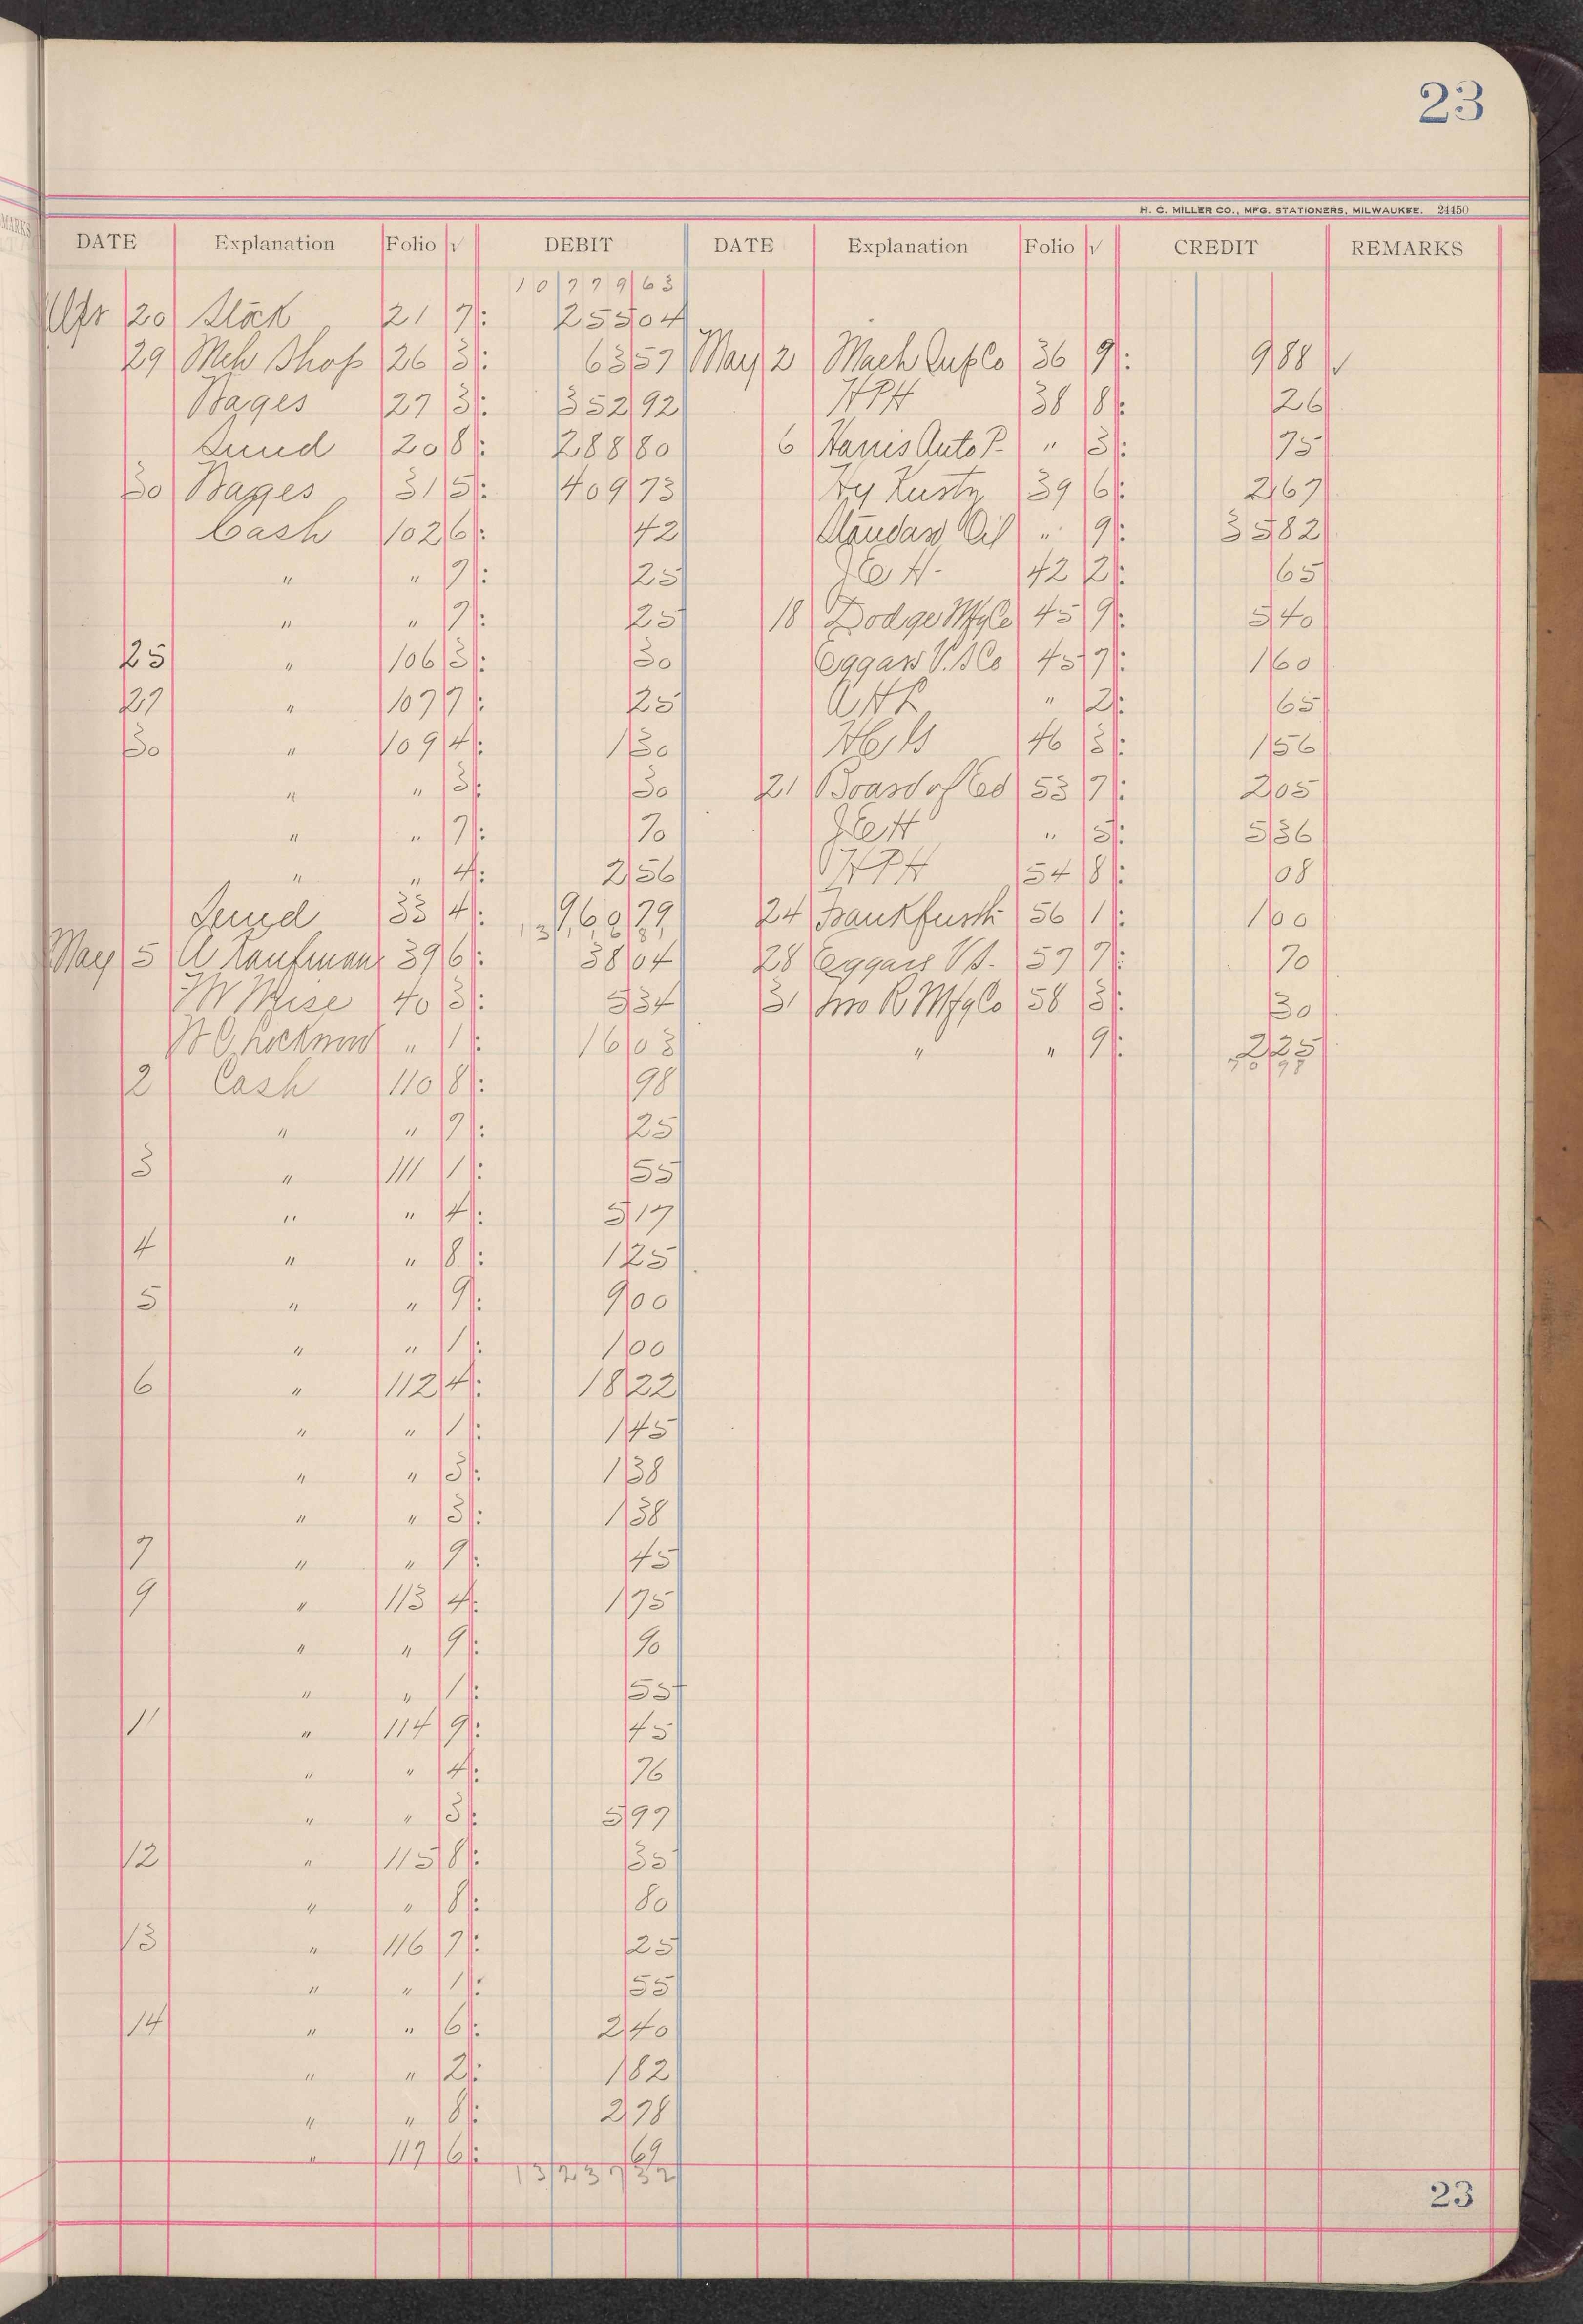 23
H. C. MILLER CO., MFG. STATIONERS, MILWAUKEE. 24450
DATE Explanation Folio √ DEBIT DATE Explanation Folio √ CREDIT REMARKS
10 779 63
Apr 20 Stock 21 7: 255 04
29 Mch Shop 26 3: 63 57 May 2 Mach Sup Co 36 9: 9 88 √
Wages 27 3: 352 92 HPH 38 8: 26
Sund 20 8: 288 80 6 Harris Auto P. " 3: 75
30 Wages 31 5: 409 73 Hy 39 6: 2 67
Cash 102 6: 42 Standard Oil " 9: 35 82
" " 7: 25 JEH 42 2: 65
" " 7: 25 18 Dodge Mfg Co 45 9: 5 40
25 " 106 3: 30 Eggars V.S Co 45 7: 1 60
27 " 107 7: 25 " 2: 65
30 " 109 4: 1 30 46 3: 1 56
" " 3: 30 21 Board of Ed 53 7: 2 05
" " 7: 70 JEH " 5: 5 36
" " 4: 2 56 HPH 54 8: 08
Sund 33 4: 960 79 24 Frankfurth 56 1: 1 00
May 5 A Kaufmann 39 6: 38 04 28 Eggars V S. 57 7: 70
Wise 40 3: 5 34 31 Jno R Mfg Co 58 3: 30
W C Lockwood " 1: 16 03 " " 9: 2 25
2 Cash 110 8: 98 70 98
" " 7: 25
3 " 111 1: 55
" " 4: 5 17
4 " " 8: 1 25
5 " " 9: 9 00
" " 1: 1 00
6 " 112 4: 18 22
" " 1: 1 45
" " 3: 1 38
" " 3: 1 38
7 " " 9: 45
9 " 113 4: 1 75
" " 9: 90
" " 1: 55
11 " 114 9: 45
" " 4: 76
" " 3: 5 97
12 " 115 8: 35
" " 8: 80
13 " 116 7: 25
" " 1: 55
14 " " 6: 2 40
" " 2: 1 82
" " 8: 2 78
" 117 6: 69
13 237 32
23